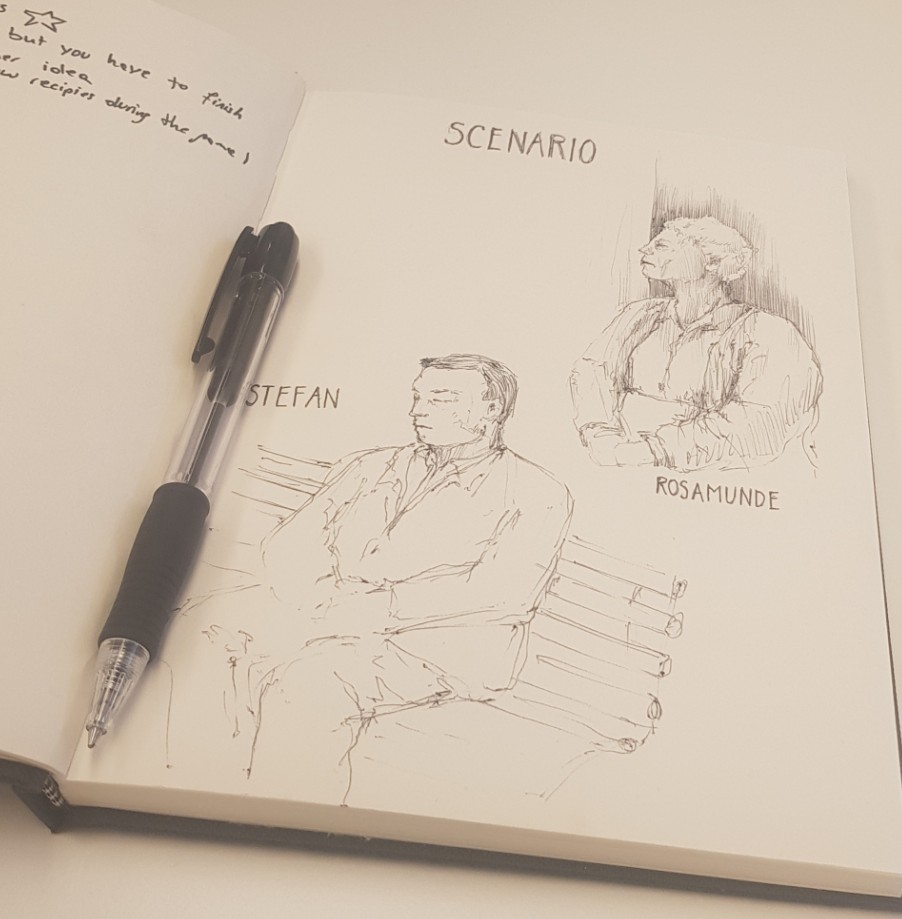 but you have to finish
idea
recipies during the game!
SCENARIO
STEFAN
ROSAMUNDE